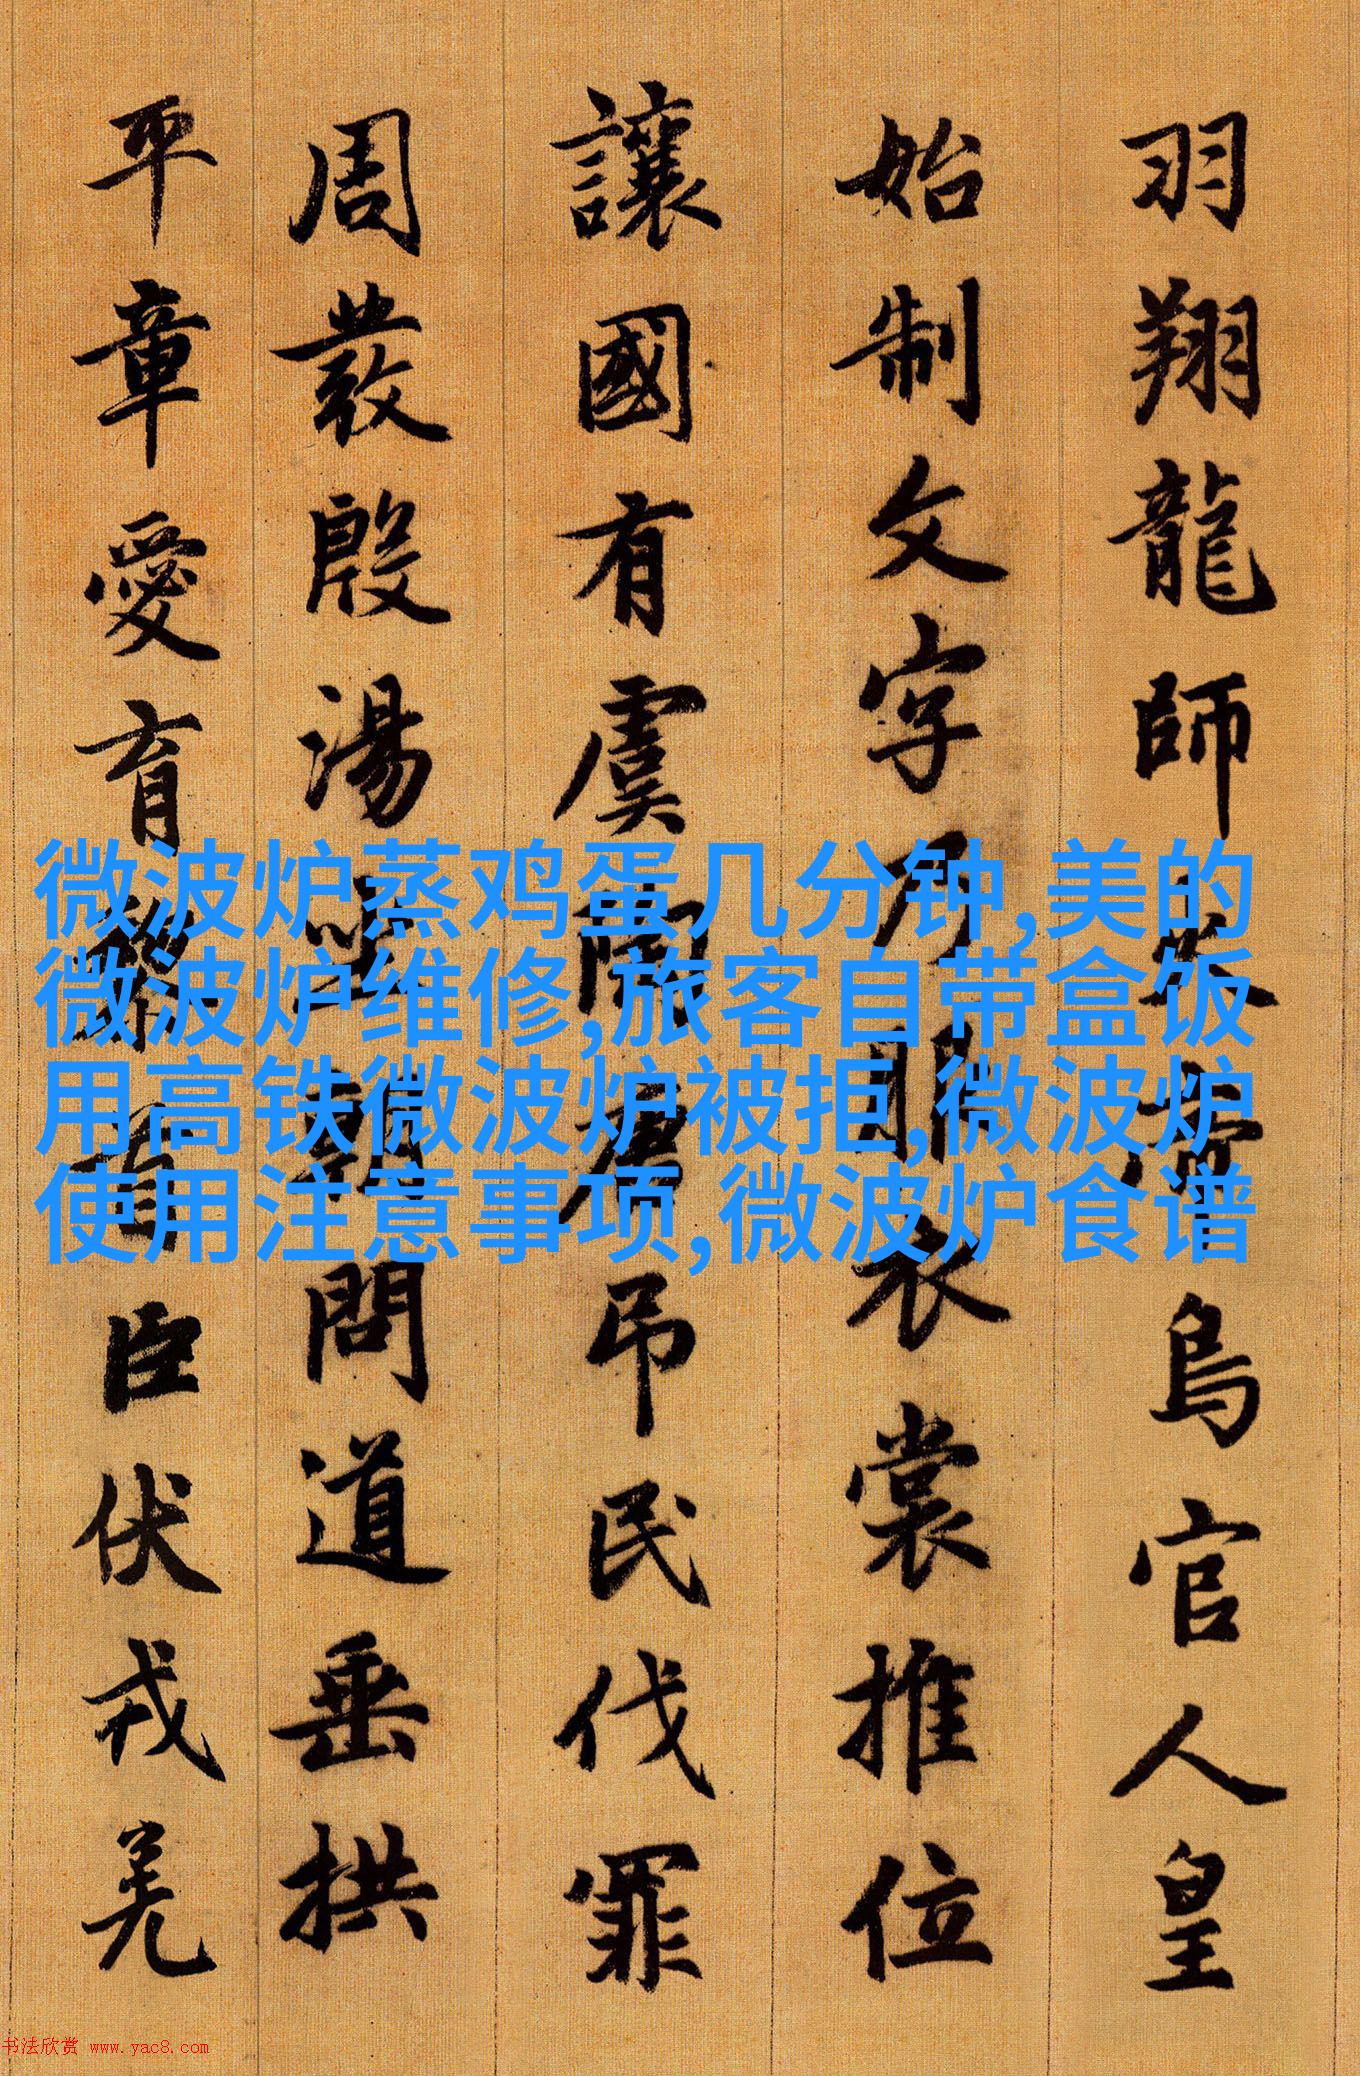 羽翔龍師火帝鳥官人皇
始制文字乃服衣裳推位
讓國有虞陶唐吊民伐罪
周發殷湯坐朝問道垂拱
平章愛育黎首臣伏戎羌
微波炉蒸鸡蛋几分钟,美的
微波炉维修,旅客自带盒饭
用高铁微波炉被拒,微波炉
使用注意事项,微波炉食谱
书法欣赏 www.yac8.com